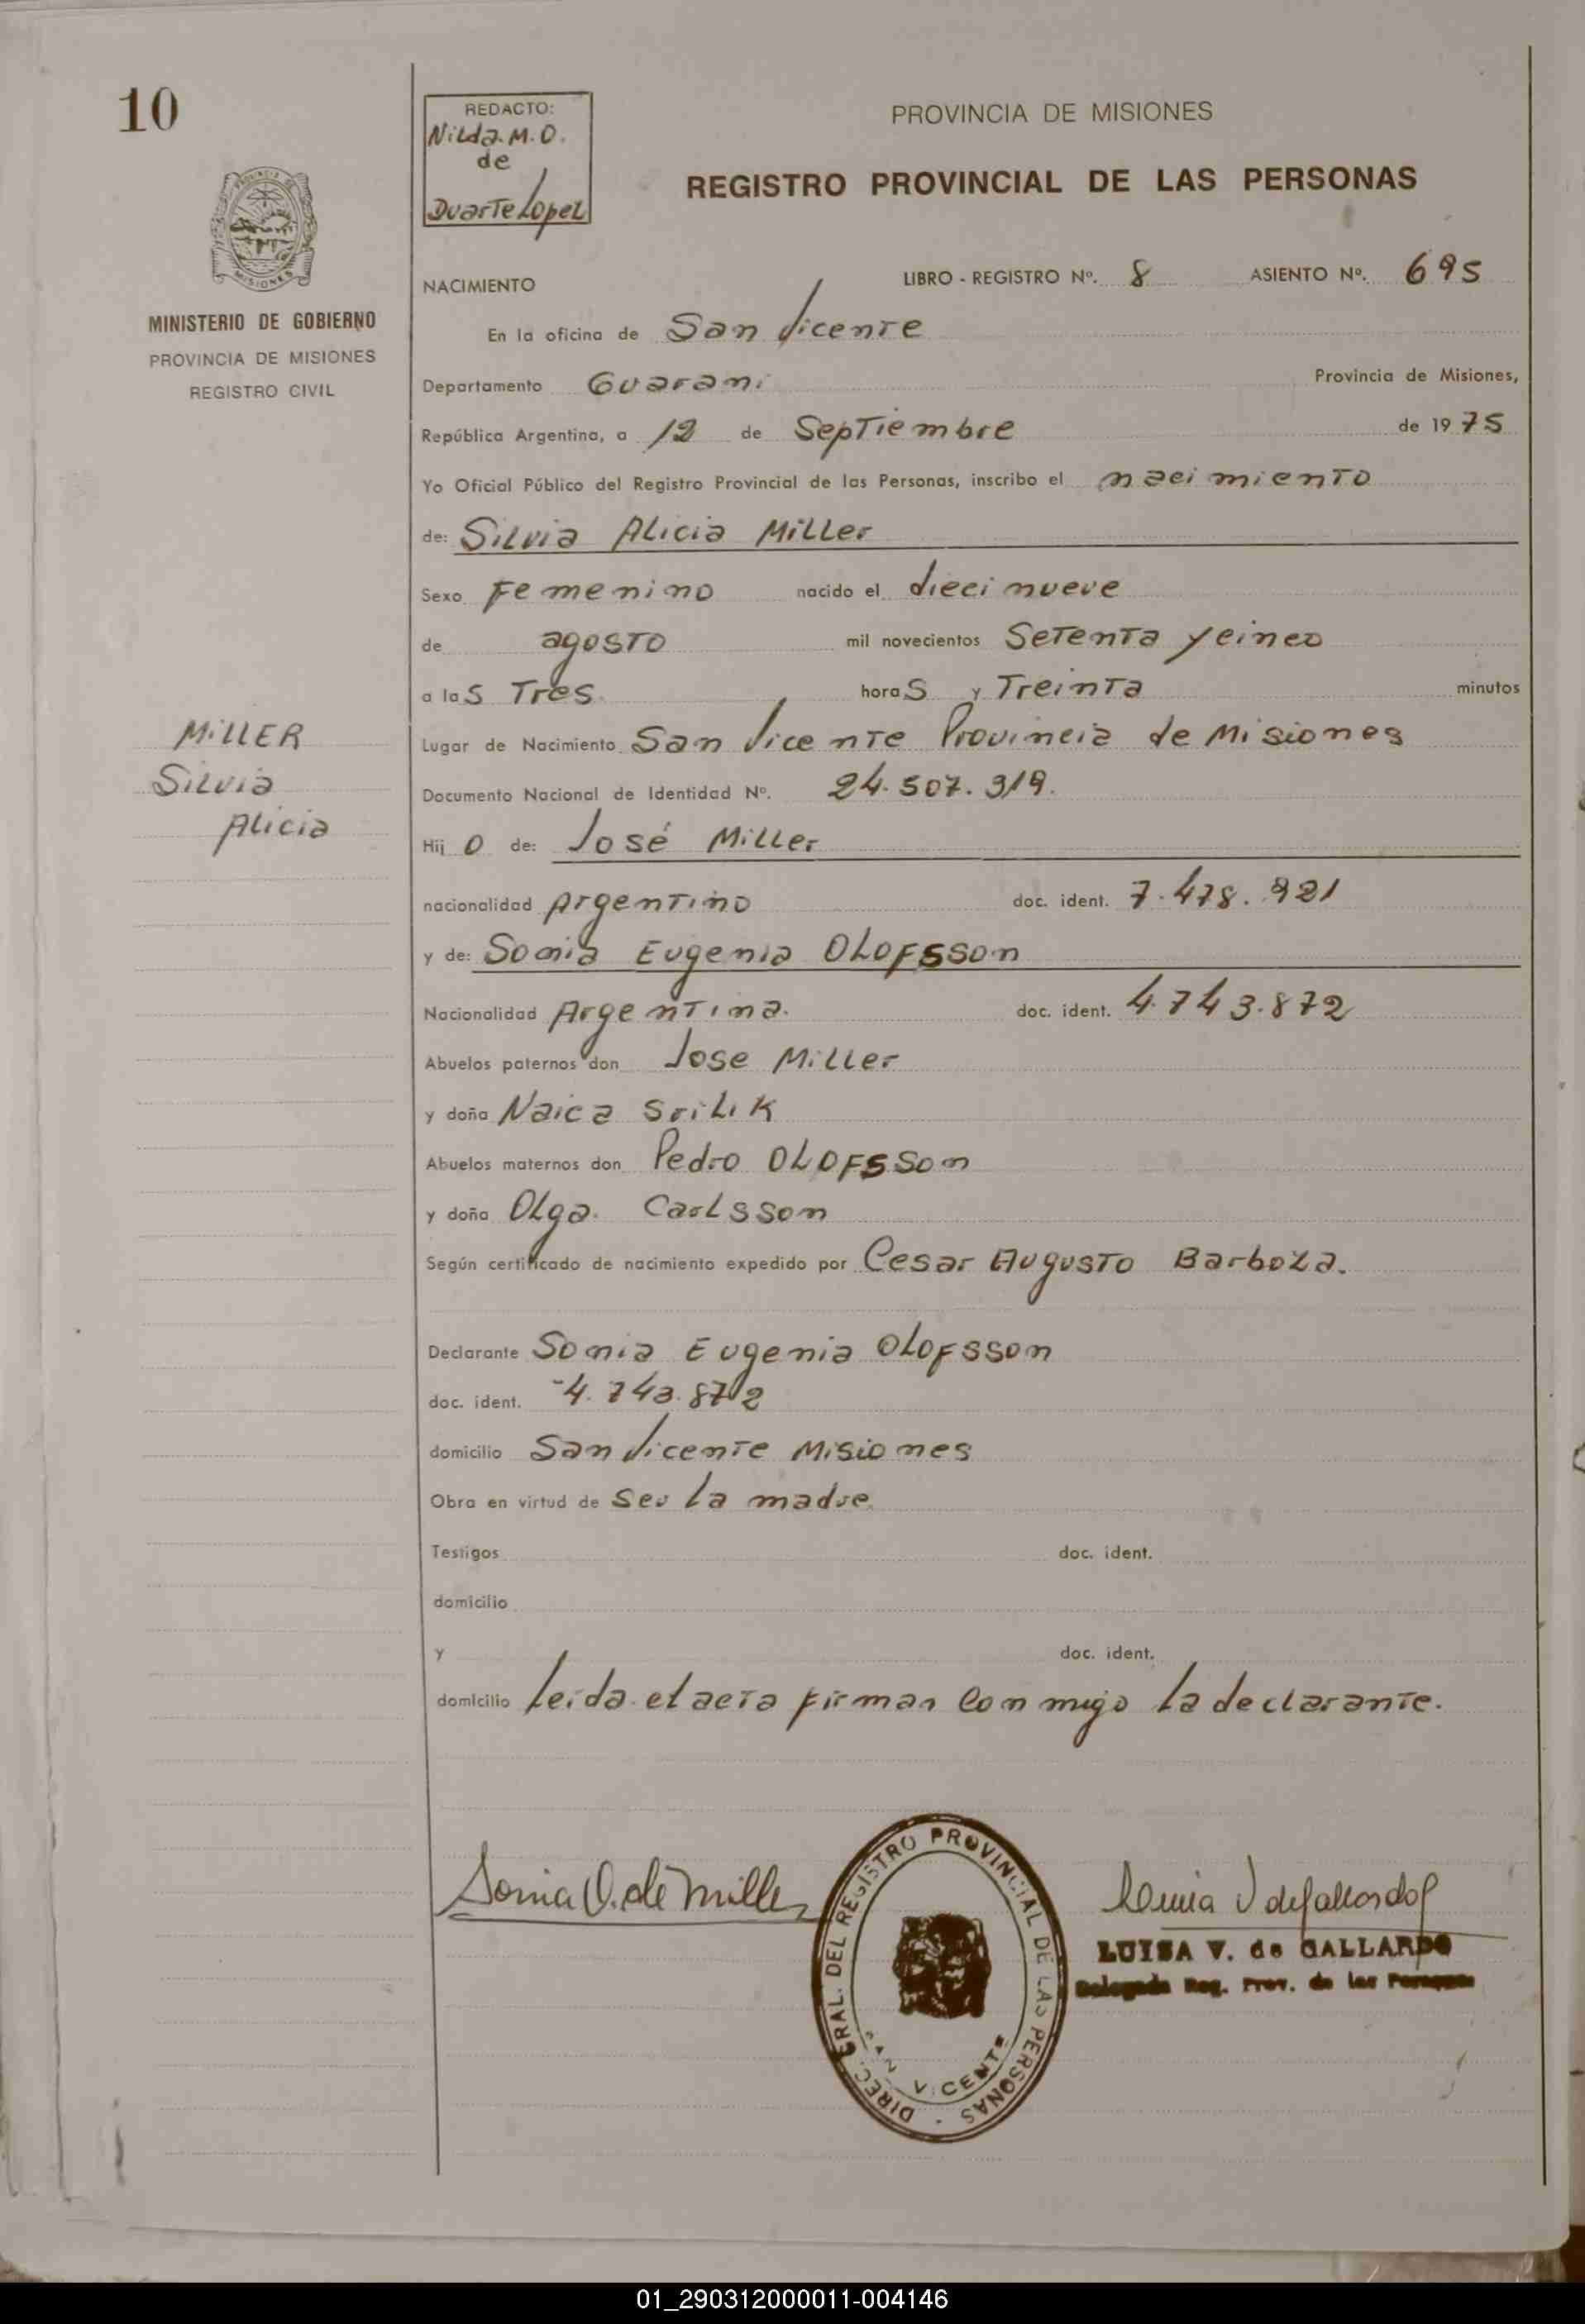 10
REDACTO:
Nilda. M. O.
de
Duarte Lopez
PROVINCIA DE MISIONES
REGISTRO PROVINCIAL DE LAS PERSONAS
PROVINCIA DE
MISIONES
MINISTERIO DE GOBIERNO
PROVINCIA DE MISIONES
REGISTRO CIVIL
NACIMIENTO LIBRO - REGISTRO Nº. 8 ASIENTO Nº. 695
En la oficina de San Vicente
Departamento Guarani Provincia de Misiones,
República Argentina, a 12 de Septiembre de 1975
Yo Oficial Público del Registro Provincial de las Personas, inscribo el nacimiento
de: Silvia Alicia Miller
Sexo Femenino nacido el diecinueve
de agosto mil novecientos Setenta y cinco
a las Tres horas y Treinta minutos
MILLER
Silvia
Alicia
Lugar de Nacimiento San Vicente Provincia de Misiones
Documento Nacional de Identidad Nº. 24.507.319.
Hij o de: José Miller
nacionalidad Argentino doc. ident. 7.478.921
y de: Sonia Eugenia OLOFSSON
Nacionalidad Argentina. doc. ident. 4.743.872
Abuelos paternos don Jose Miller
y doña Naica Srilik
Abuelos maternos don Pedro OLOFSSON
y doña Olga. Carlsson
Según certificado de nacimiento expedido por Cesar Augusto Barboza.
Declarante Sonia Eugenia Olofsson
doc. ident. 4.743.872
domicilio San Vicente Misiones
Obra en virtud de Ser la madre
Testigos doc. ident.
domicilio
y doc. ident.
domicilio Leida el acta firman conmigo la declarante.
Sonia O. de Miller
DIREC. GRAL. DEL REGISTRO PROVINCIAL DE LAS PERSONAS
SAN VICENTE
LUISA V. de GALLARDO
Delegada Reg. Prov. de las Personas
01_290312000011-004146